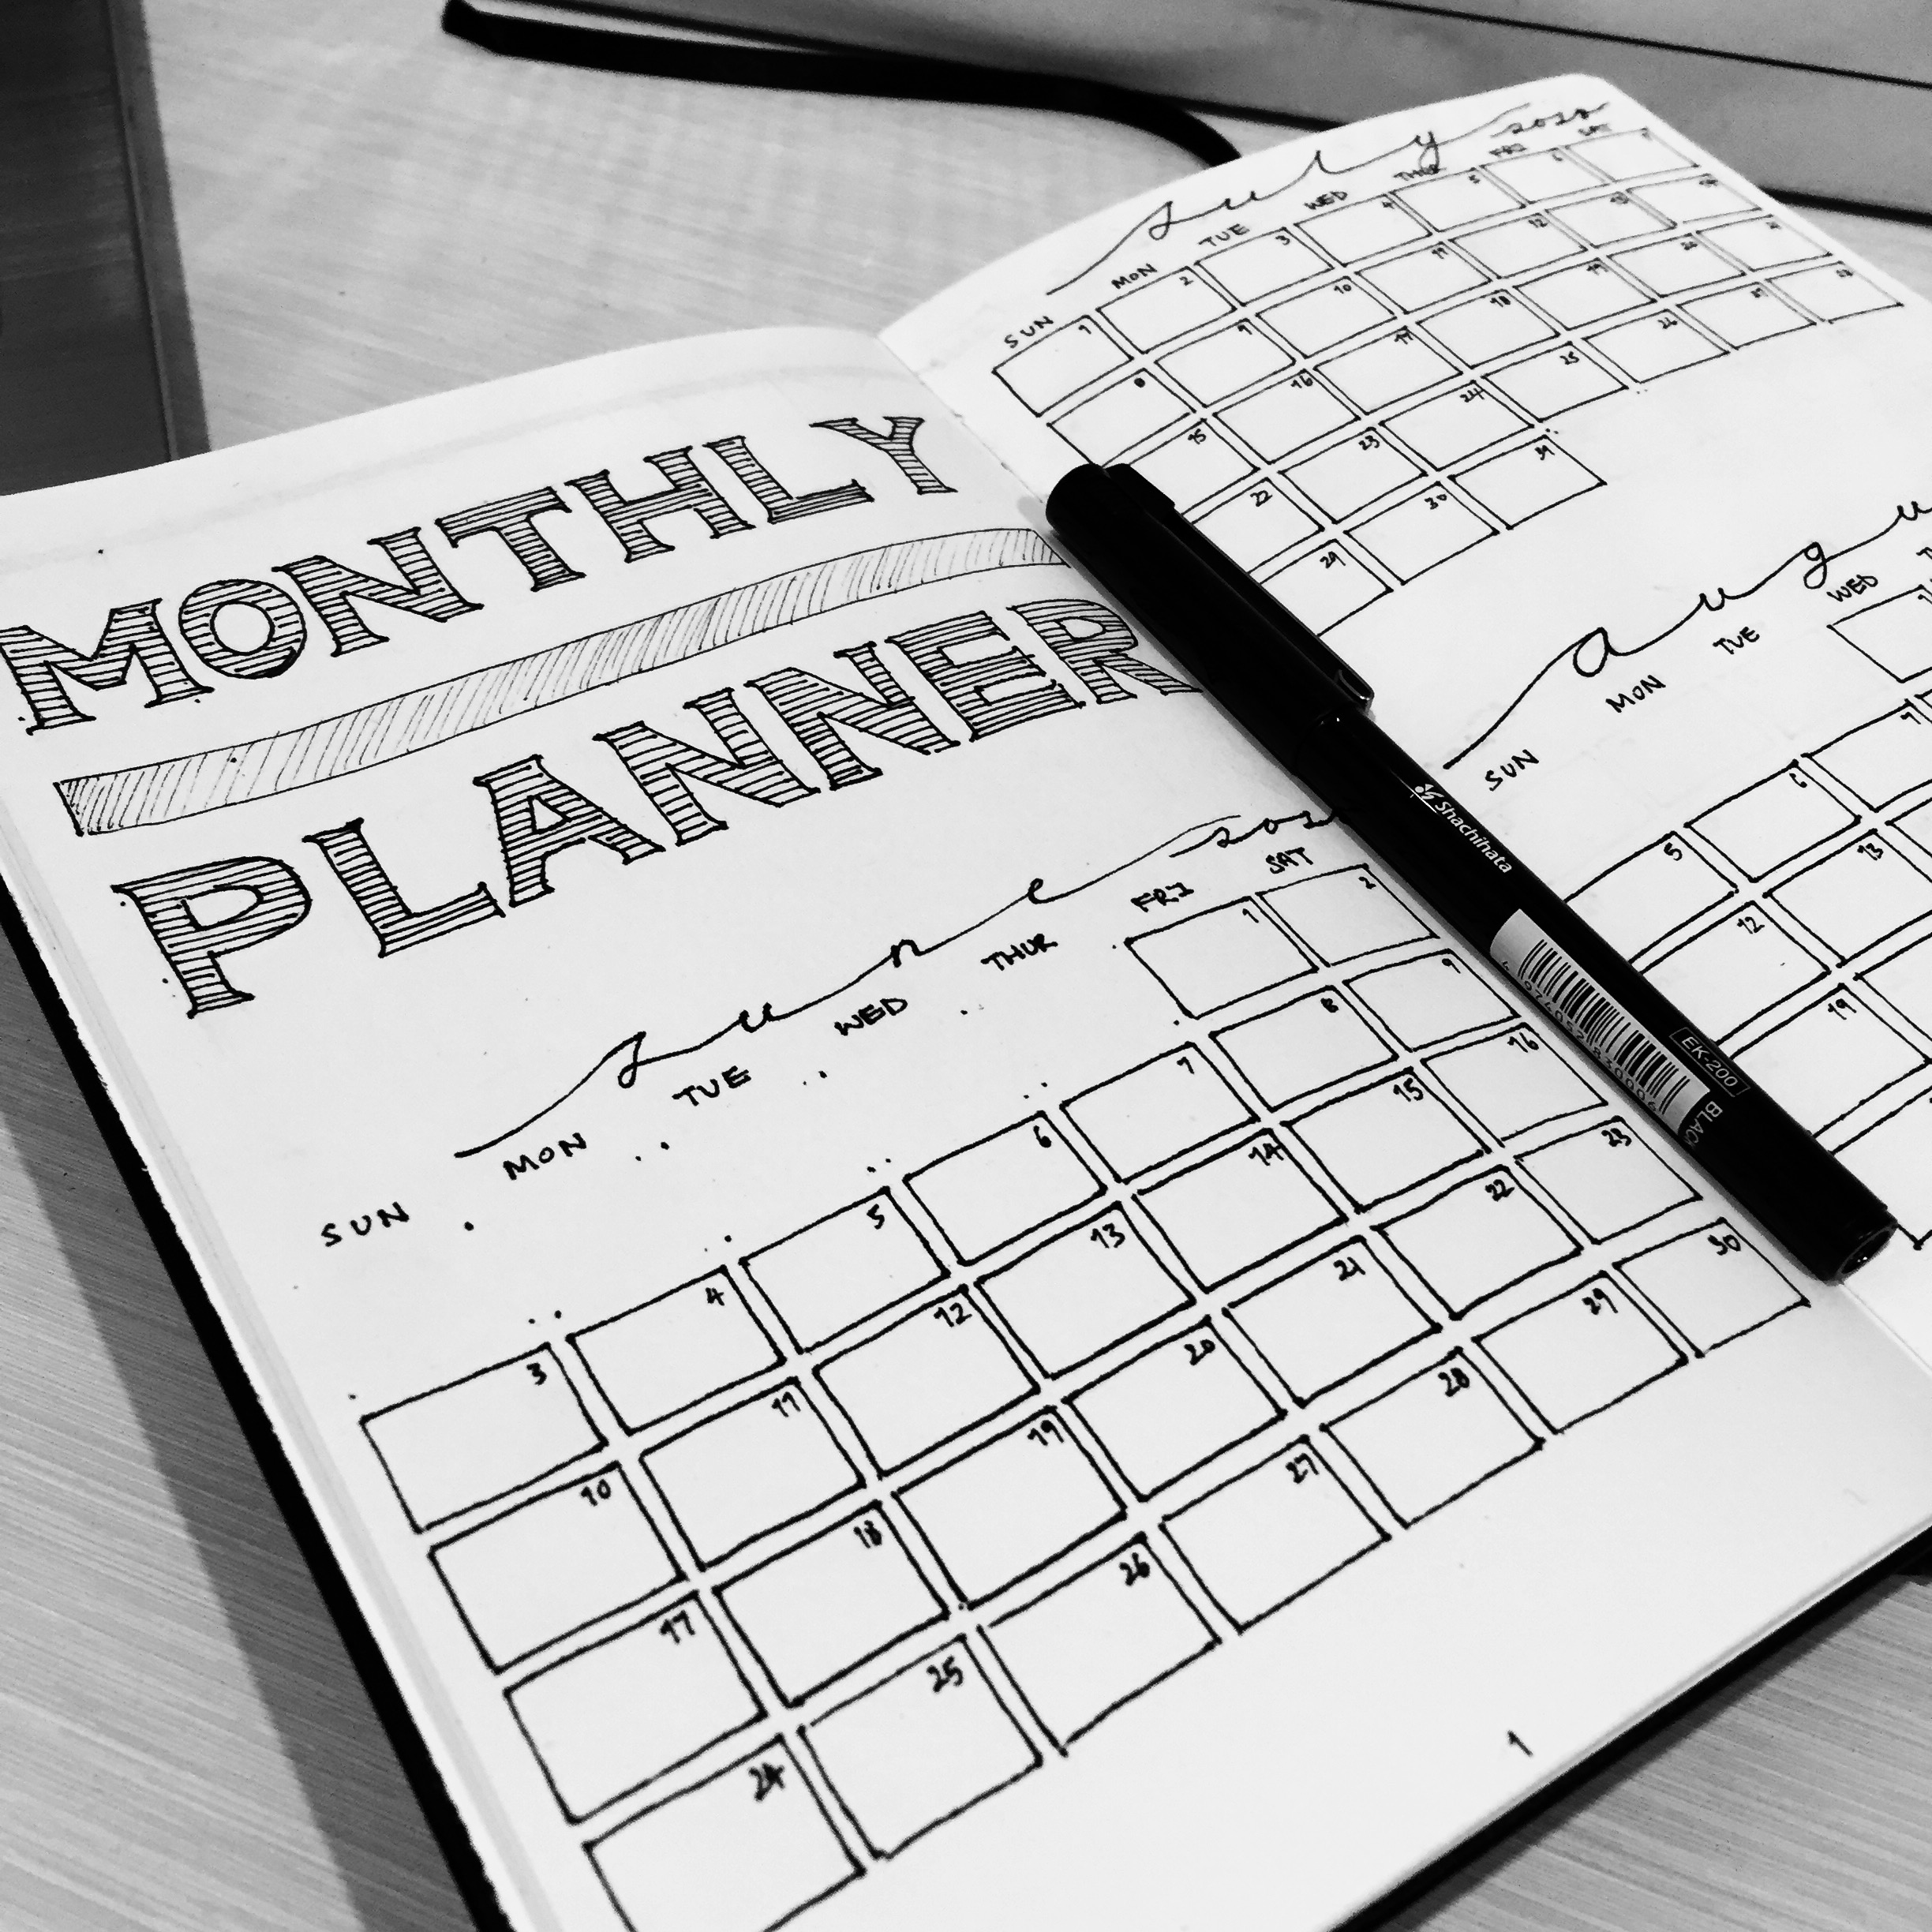 MONTHLY
PLANNER
june
SUN MON TUE WED THUR FRI SAT
1 2
3 4 5 6 7 8 9
10 11 12 13 14 15 16
17 18 19 20 21 22 23
24 25 26 27 28 29 30
1
July 2018
SUN MON TUE WED THUR FRI SAT
1 2 3 4 5 6 7
8 9 10 11 12 13 14
15 16 17 18 19 20 21
22 23 24 25 26 27 28
29 30 31
augu
SUN MON TUE WED
5 6 7
12 13
19
Shachihata
EK-200
BLACK